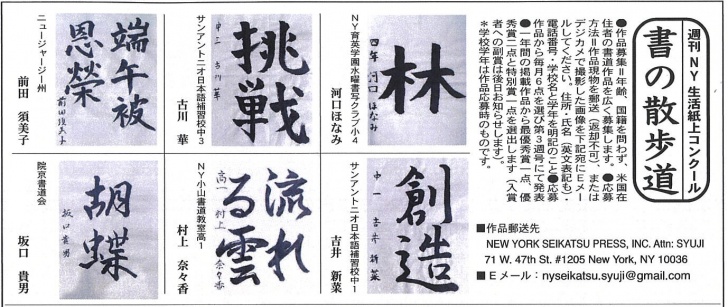 週刊NY生活紙上コンクール
書の散歩道
●作品募集＝年齢、国籍を問わず、米国在
住者の書道作品を広く募集します。●応募
方法＝作品現物を郵送（返却不可）、または
デジカメで撮影した画像を下記宛にEメー
ルしてください。住所・氏名（英文表記も）・
電話番号・学校名と学年を明記のこと●応募
作品から毎月6点を選び第3週号にて発表
●一年間の掲載作品から最優秀賞一点、優
秀賞二点と特別賞一点を選出します（入賞
者への副賞は後日お知らせします）。
＊学校学年は作品応募時のものです。
■作品郵送先
NEW YORK SEIKATSU PRESS, INC. Attn: SYUJI
71 W. 47th St. #1205 New York, NY 10036
■Eメール：nyseikatsu.syuji@gmail.com
林
四年 河口ほなみ
NY育英学園水曜書写クラブ小4
河口ほなみ
挑戦
中三 古川 華
サンアントニオ日本語補習校中3
古川 華
端午被
恩榮
前田須美子
ニュージャージー州
前田 須美子
創造
中一 吉井新菜
サンアントニオ日本語補習校中1
吉井 新菜
流れ
る雲
高一 村上奈々香
NY小山書道教室高1
村上 奈々香
胡蝶
坂口貴男
院京書道会
坂口 貴男